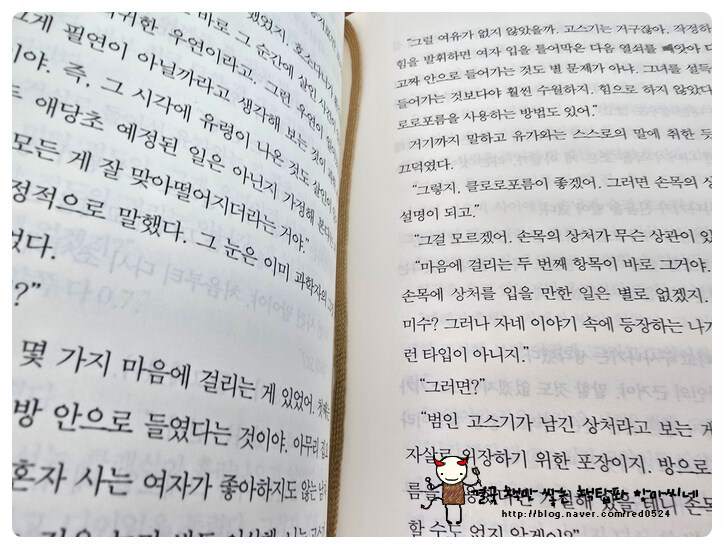 바로 그 순간에 살인 사건이
귀한 우연이라고. 그런 우연이
게 필연이 아닐까라고 생각해 보는 것이
이야. 즉, 그 시각에 유령이 나온 것도 살인이
애당초 예정된 일은 아닌지 가정해 본다는
모든 게 잘 맞아떨어지더라는 거야."
정적으로 말했다. 그 눈은 이미 과학자의
었다.
?"
몇 가지 마음에 걸리는 게 있었어. 첫째는
방 안으로 들였다는 것이야. 아무리
혼자 사는 여자가 좋아하지도 않는
"그럴 여유가 없지 않았을까. 고스기는 거구잖아. 작정하
힘을 발휘하면 여자 입을 틀어막은 다음 열쇠를 빼앗아 다
고짜 안으로 들어가는 것도 별 문제가 아냐. 그녀를 설득
들어가는 것보다야 훨씬 수월하지. 힘으로 하지 않았다
로로포름을 사용하는 방법도 있어."
거기까지 말하고 유가와는 스스로의 말에 취한 듯
끄덕였다.
"그렇지, 클로로포름이 좋겠어. 그러면 손목의 상
설명이 되고."
"그걸 모르겠어. 손목의 상처가 무슨 상관이 있
"마음에 걸리는 두 번째 항목이 바로 그거야.
손목에 상처를 입을 만한 일은 별로 없겠지.
미수? 그러나 자네 이야기 속에 등장하는 나가
런 타입이 아니지."
"그러면?"
"범인 고스기가 남긴 상처라고 보는 게
자살로 위장하기 위한 포장이지. 방으로
름을
할 수도 없지 않겠어?"
http://blog.naver.com/red0524